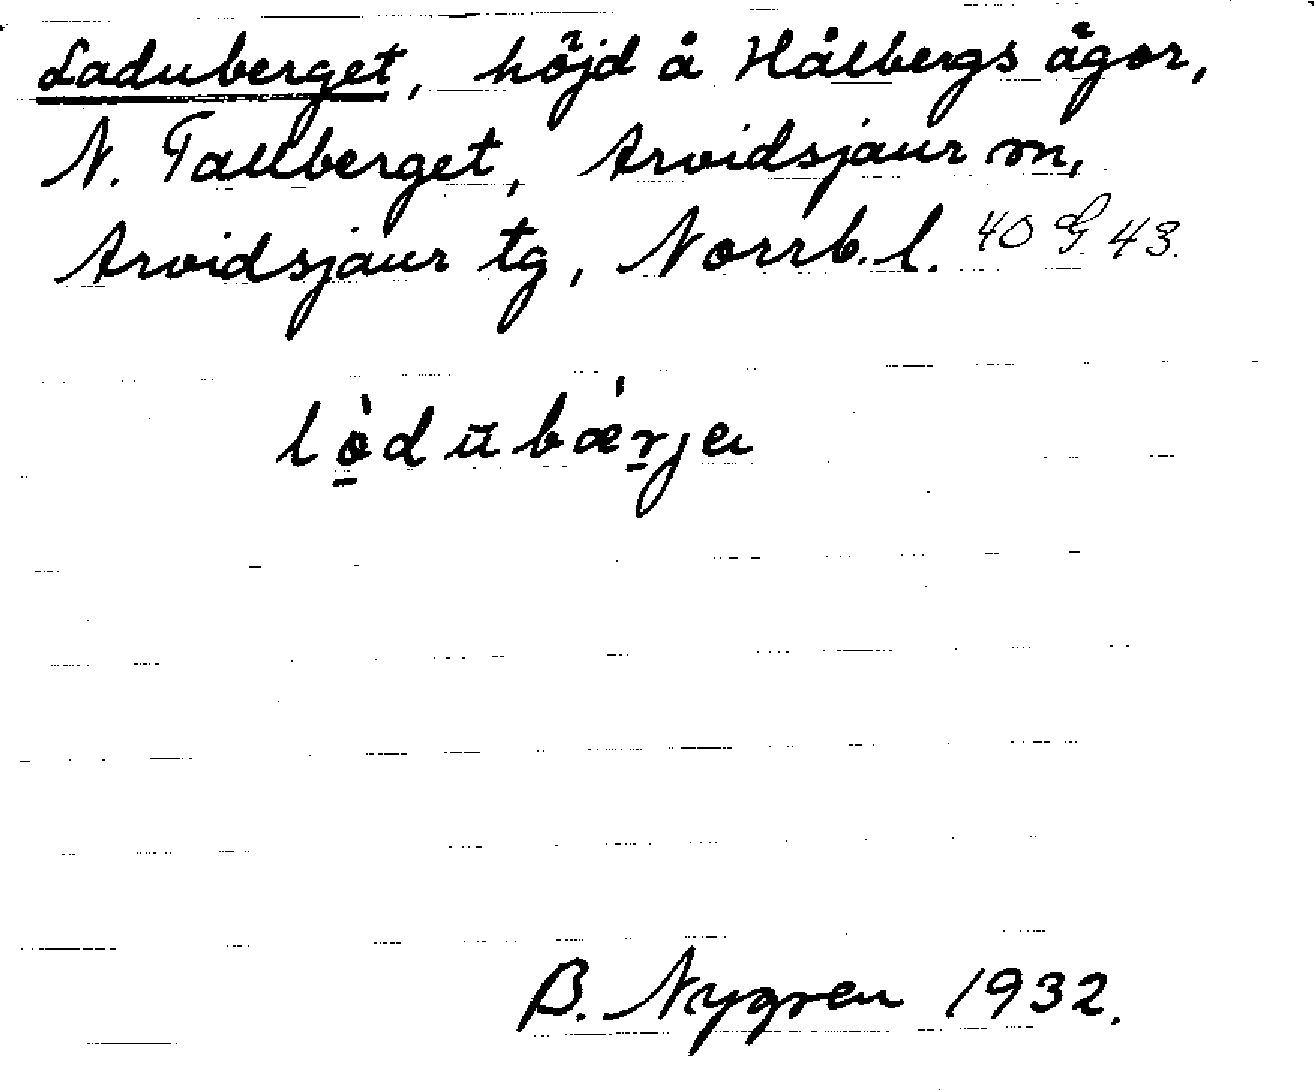 Laduberget, höjd å Hålbergs ägor,
N. Tallberget, Arvidsjaur sn,
Arvidsjaur tg, Norrb. l. 40 G 43.
lòdubǽrjeɩ
B. Nygren 1932.